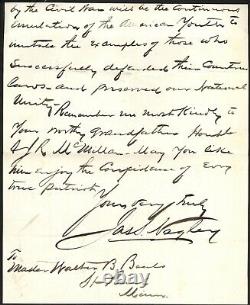 by the Civil War will be the Continuous
emulation of the American Youth to
imitate the examples of those who
Successfully defended their Countries
and preserved our National
Unity. Remember me most Kindly to
Your worthy Grandfather Honble
S J R McMillan. May You like
him enjoy the Confidence of Every
true patriot.
Yours Very truly
Jas. S. Negley
To
Master Walter B
St Paul
Minn.